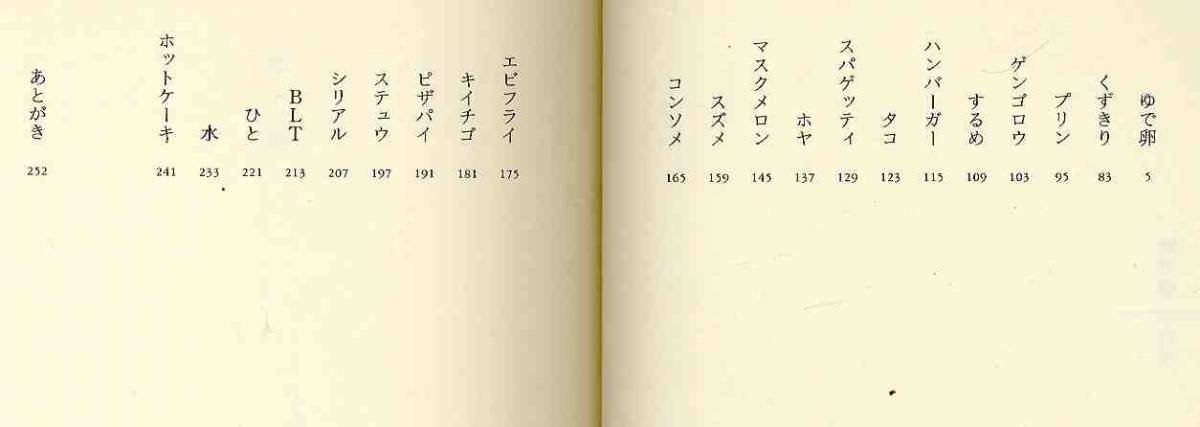 ゆで卵 5
くずきり 83
プリン 95
ゲンゴロウ 103
するめ 109
ハンバーガー 115
タコ 123
スパゲッティ 129
ホヤ 137
マスクメロン 145
スズメ 159
コンソメ 165
エビフライ 175
キイチゴ 181
ピザパイ 191
ステュウ 197
シリアル 207
BLT 213
ひと 221
水 233
ホットケーキ 241
あとがき 252